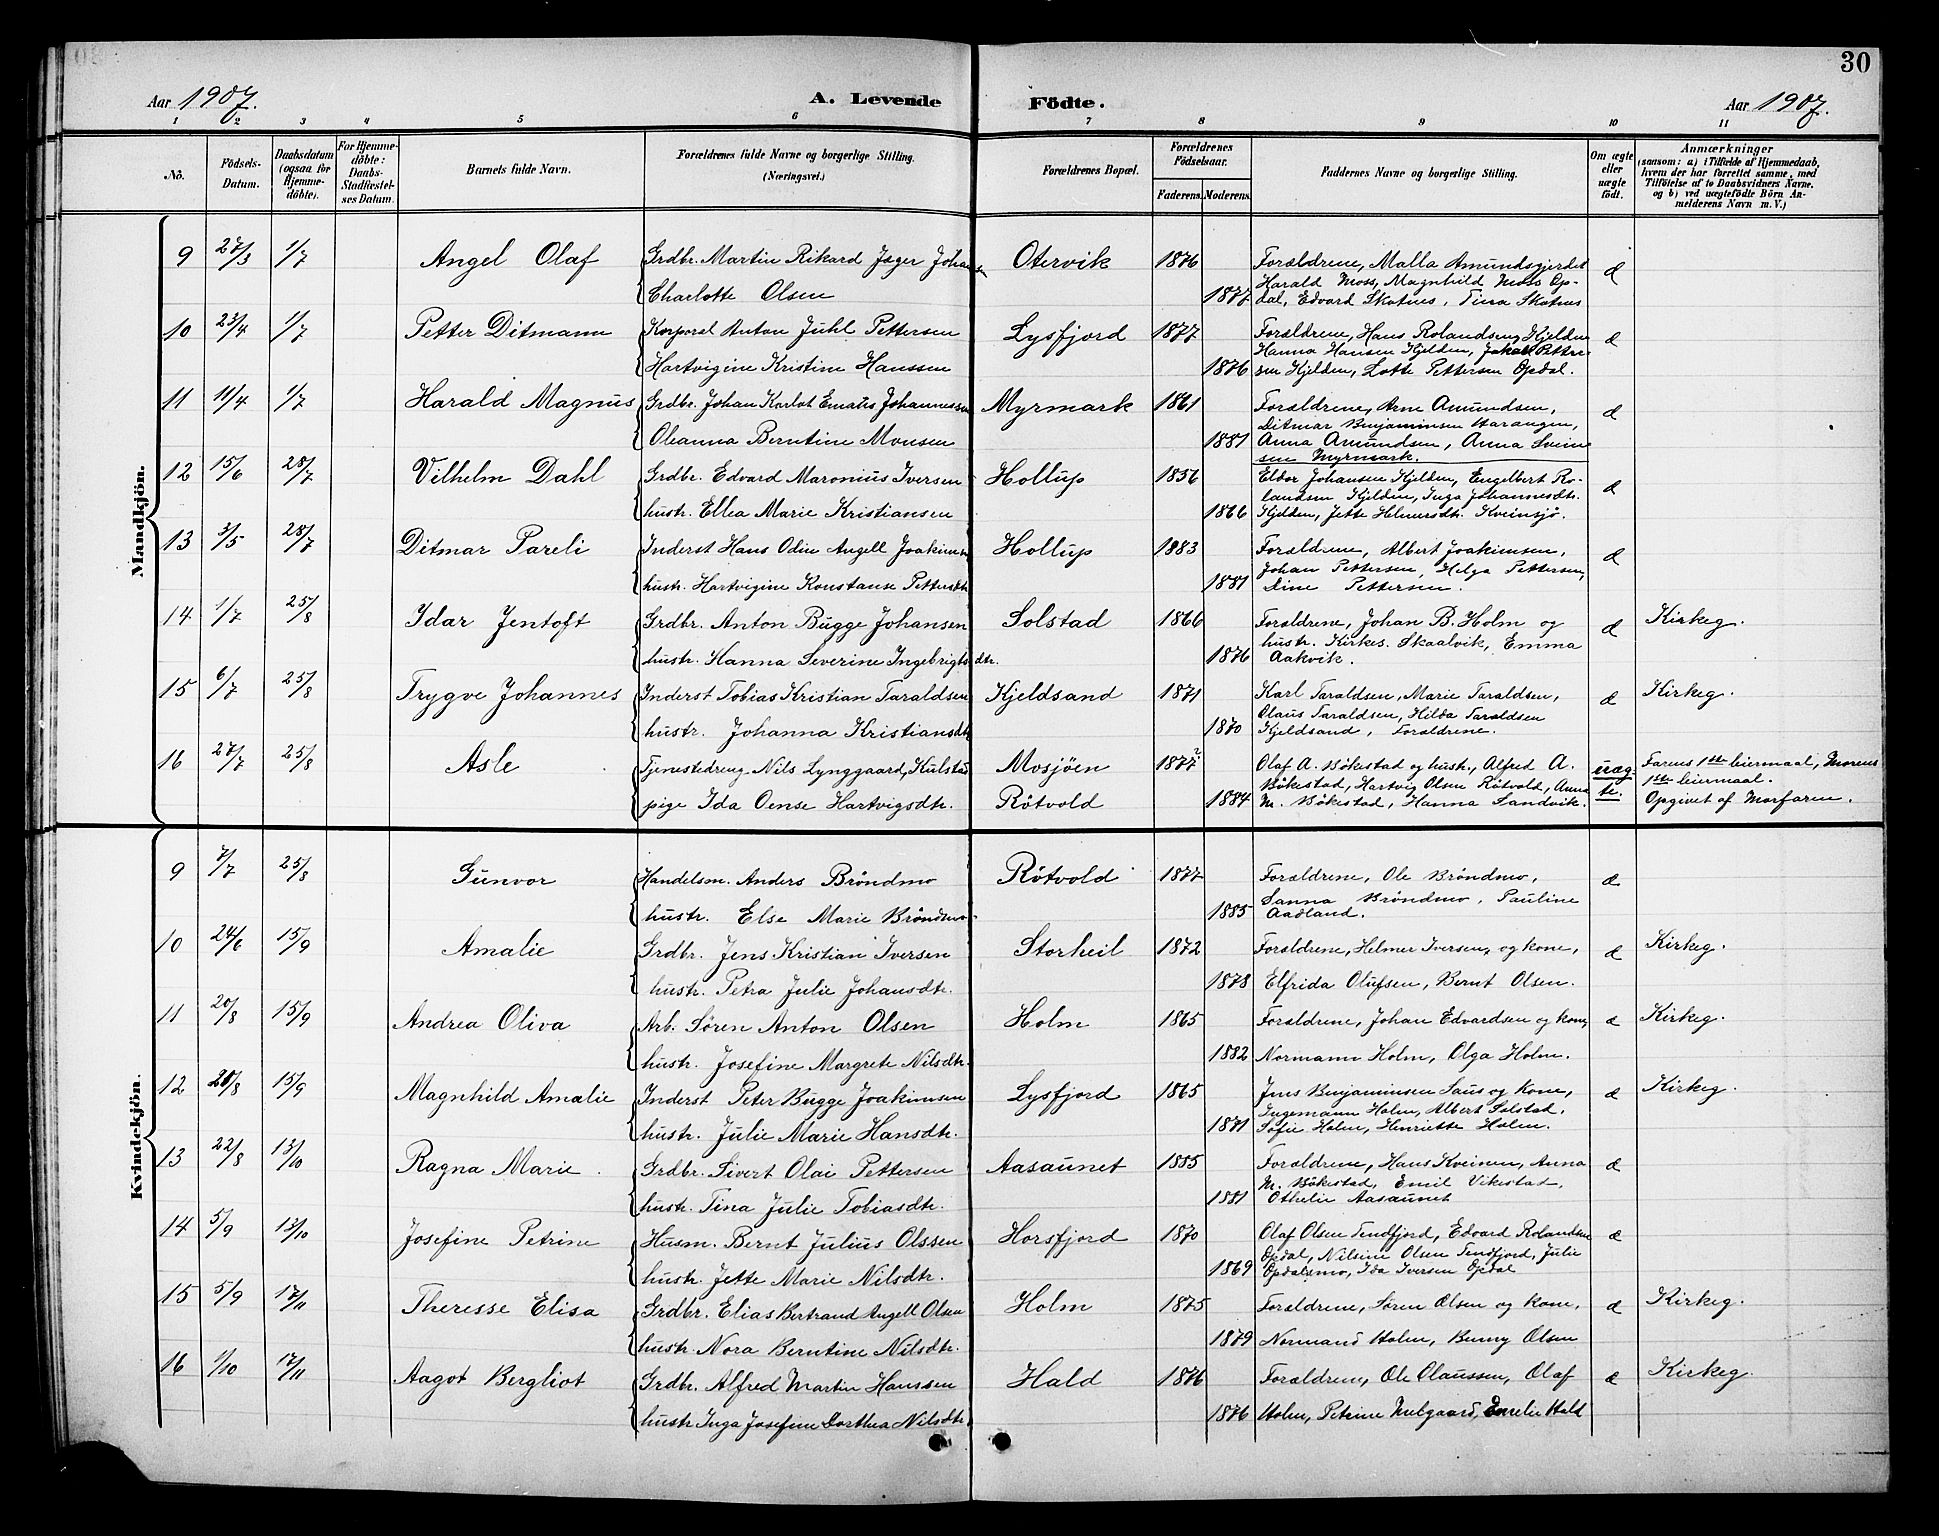 30
Aar 1907. A. Levende Födte. Aar 1907.
1 2 3 4 5 6 7 8 9 10 11
No. Födsels-Datum. Daabsdatum (ogsaa for Hjemme-döbte). For Hjemme-döbte: Daabs-Stadfæstel-ses Datum. Barnets fulde Navn. Forældrenes fulde Navne og borgerlige Stilling. (Næringsvei.) Forældrenes Bopæl. Forældrenes Födselsaar. Faderens. Moderens. Faddernes Navne og borgerlige Stilling. Om ægte eller uægte födt. Anmærkninger (saasom: a) i Tilfælde af Hjemmedaab, hvem der har forrettet samme, med Tilföielse af to Daabsvidners Navne. og b) ved uægtefödte Börn An-melderens Navn m. V.)
Mandkjön.
9 27/3 1/7 Angel Olaf Grdbr. Martin Rikard Jæger Johansen Otervik 1876 Forældrene, Malla Amundsgjerdet æ
Charlotte Olsen 1877 Harald Moss, Magnhild Moss Op-
dal, Edvard Skatnes, Tina Skatnes
10 23/4 1/7 Petter Ditmann Korporal Anton Juhl Pettersen Lysfjord 1877 Forældrene, Hans Rolandsen Kjelden æ
Hartvigine Kristine Hanssen 1876 Hanna Hansen Kjelden, Jakob Petter-
sen Kjelden, Lotte Pettersen Opdal.
11 11/4 1/7 Harald Magnus Grdbr. Johan Karlot Ematis Johannessen Myrmark 1861 Forældrene, Arne Amundsen, æ
Oleanna Berntine Monsen 1881 Ditmar Benjaminsen Harangen,
Anna Amundsen, Anna Svein-
sen Myrmark.
12 15/6 28/7 Vilhelm Dahl Grdbr. Edvard Maronius Iversen Hollup 1856 Eldor Johansen Kjelden, Engelbert Ro- æ
hustr. Ellea Marie Kristiansen 1866 landsen Kjelden, Inga Johannesdtr.
Kjelden, Jette Helmersdtr. Kveinsjø.
13 3/5 28/7 Ditmar Pareli Inderst Hans Odin Angell Joakimsen Hollup 1883 Forældrene, Albert Joakimsen, æ
hustr. Hartvigine Konstanse Pettersdtr 1881 Johan Pettersen, Helga Pettersen,
Dine Pettersen.
14 1/7 25/8 Idar Jentoft Grdbr. Anton Bugge Johansen Solstad 1866 Forældrene, Johan B. Holm og æ Kirkeg.
hustr. Hanna Severine Ingebrigtsdtr. 1876 hustr. Kirkes. Skaalvik, Emma
Aakvik.
15 6/7 25/8 Trygve Johannes Inderst Tobias Kristian Taraldsen Kjeldsand 1871 Karl Taraldsen, Marie Taraldsen, æ Kirkeg.
hustr. Johanna Kristiansdtr 1870 Olaus Taraldsen, Hilda Taraldsen
Kjeldsand, Forældrene.
16 27/7 25/8 Asle Tjenestedreng Nils Lynggaard Kulstad Mosjöen 1877? Olaf A. Bökestad og hustr., Alfred A. uæg-te. Farens 1ste leiermaal, Morens
pige Ida Oense Hartvigsdtr. Rötvold 1884 Bökestad, Hartvig Olsen Rötvold, Anna 1ste leiermaal.
M. Bökestad, Hanna Sandvik. Opgivet af Morfaren.
Kvindekjön.
9 7/7 25/8 Gunvor Handelsm. Anders Bröndmo Rötvold 1877 Forældrene, Ole Bröndmo, æ
hustr. Else Marie Bröndmo 1885 Sanna Bröndmo, Pauline
Aadland.
10 24/6 15/9 Amalie Grdbr. Jens Kristian Iversen Storheil 1872 Forældrene, Helmer Iversen og kone, æ Kirkeg.
hustr. Petra Julie Johansdtr. 1878 Elfrida Olufsen, Bernt Olsen.
11 20/8 15/9 Andrea Oliva Arb. Sören Anton Olsen Holm 1865 Forældrene, Johan Edvardsen og kone, æ Kirkeg.
hustr. Josefine Margrete Nilsdtr. 1882 Normann Holm, Olga Holm.
12 20/8 15/9 Magnhild Amalie Inderst Peter Bugge Joakimsen Lysfjord 1865 Jens Benjaminsen Saus og kone, æ Kirkeg.
hustr. Julie Marie Hansdtr. 1871 Ingemann Holm, Albert Solstad.
Sofie Holm, Henriette Holm.
13 22/8 13/10 Ragna Marie Grdbr. Sivert Olai Pettersen Aasaunet 1885 Forældrene, Hans Kveinen, Anna æ
hustr. Tina Julie Tobiasdtr. 1881 M. Bökestad, Emil Vikestad,
Othelie Aasaunet
14 5/9 13/10 Josefine Petrine Husm. Bernt Julius Olssen Horsfjord 1870 Olaf Olsen Tendfjord, Edvard Rolandsen æ
hustr. Jette Marie Nilsdtr. 1869 Opdal, Nilsine Olsen Tendfjord, Julie
Opdalsmo, Ida Iversen Opdal
15 5/9 17/11 Theresse Elisa Grdbr. Elias Bertrand Angell Olsen Holm 1875 Forældrene, Sören Olsen og kone, æ Kirkeg.
hustr. Nora Berntine Nilsdtr. 1879 Normand Holm, Benny Olsen
16 1/10 17/11 Aagot Bergliot Grdbr. Alfred Martin Hanssen Hald 1876 Forældrene, Ole Olaussen, Olaf æ Kirkeg.
hustr Inga Josefine Dorthea Nilsdtr 1876 Holm, Petrine Melgaard, Emelie Hald